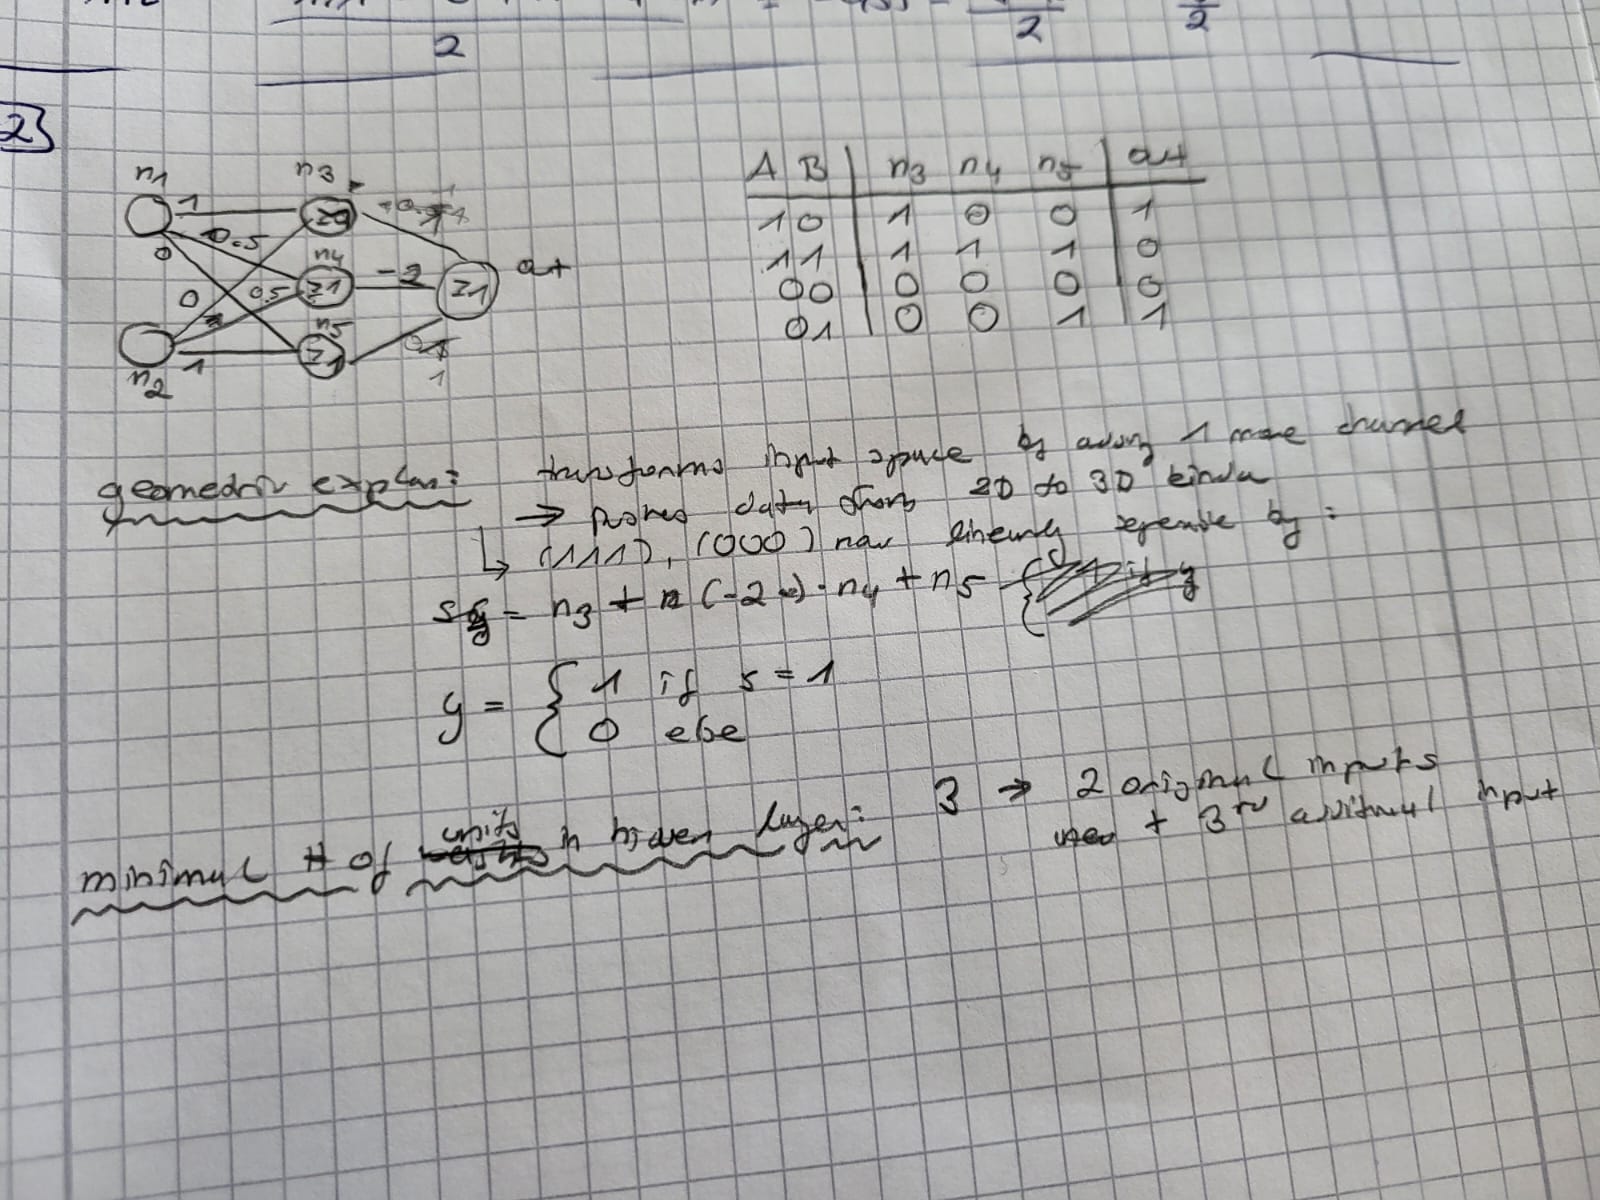 2
2
2
2}
n1 n3
1
0.5
n4
0
-2
≥1
≥1
out
0 0.5
n5
≥1
1
1
n2
A B | n3 n4 n5 | out
1 0 | 1 0 0 | 1
1 1 | 1 1 1 | 0
0 0 | 0 0 0 | 0
0 1 | 0 0 1 | 1
geometric explan: transforms input space by adding 1 more channel
→ pushes data from 2D to 3D kinda
↳ (111), (000) now linearly seperable by:
s = n3 + (-2) · n4 + n5
y = { 1 if s = 1
0 else
minimal # of units in hidden layer: 3 → 2 original inputs
+ 3rd additional input